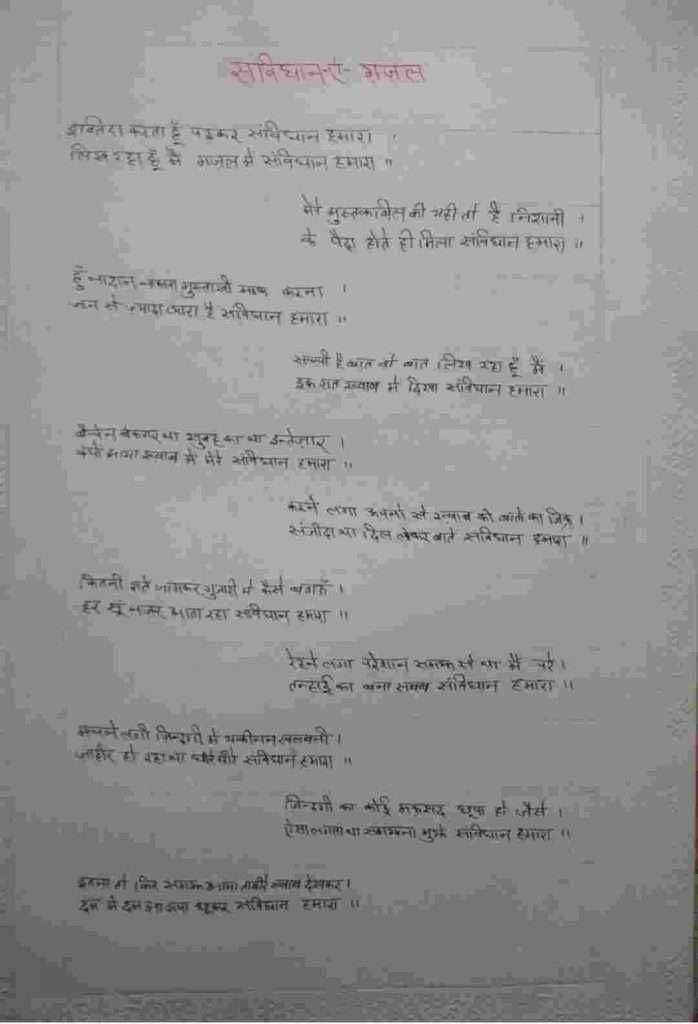 संविधान-ए- ग़ज़ल
इब्तिदा करता हूँ पढ़कर संविधान हमारा ।
लिख रहा हूँ मैं ग़ज़ल में संविधान हमारा ॥
मेरे मुस्तकबिल की यही तो है निशानी ।
के पैदा होते ही मिला संविधान हमारा ॥
हूँ नादान गुस्ताख़ी माफ़ करना ।
जान से ज़्यादा प्यारा है संविधान हमारा ॥
सच्ची है बात वो बात लिख रहा हूँ मैं ।
इक रात ख़्वाब में दिखा संविधान हमारा ॥
बेचैन बेकरार था सुबह का था इन्तेज़ार ।
आया ख़्वाब में मेरे संविधान हमारा ॥
करने लगा अपनों से ख़्वाब की बातों का ज़िक्र ।
संजीदा था दिल लेकर बातें संविधान हमारा ॥
कितनी रातें जागकर गुज़ारी मैं कैसे बताऊँ ।
हर सूं नज़र आता रहा संविधान हमारा ॥
रहने लगा परेशान समझ से था मैं परे ।
तन्हाई का बना सबब संविधान हमारा ॥
मचने लगी ज़िन्दगी में यकीनन खलबली ।
ज़ाहीर हो रहा था धीरे धीरे संविधान हमारा ॥
ज़िन्दगी का कोई मक़सद छूपा हो जैसे ।
ऐसा लगता था समझना मुझे संविधान हमारा ॥
इतना में फिर समझ आया ख़्वाब देखकर ।
दम में दम आ गया छूकर संविधान हमारा ॥